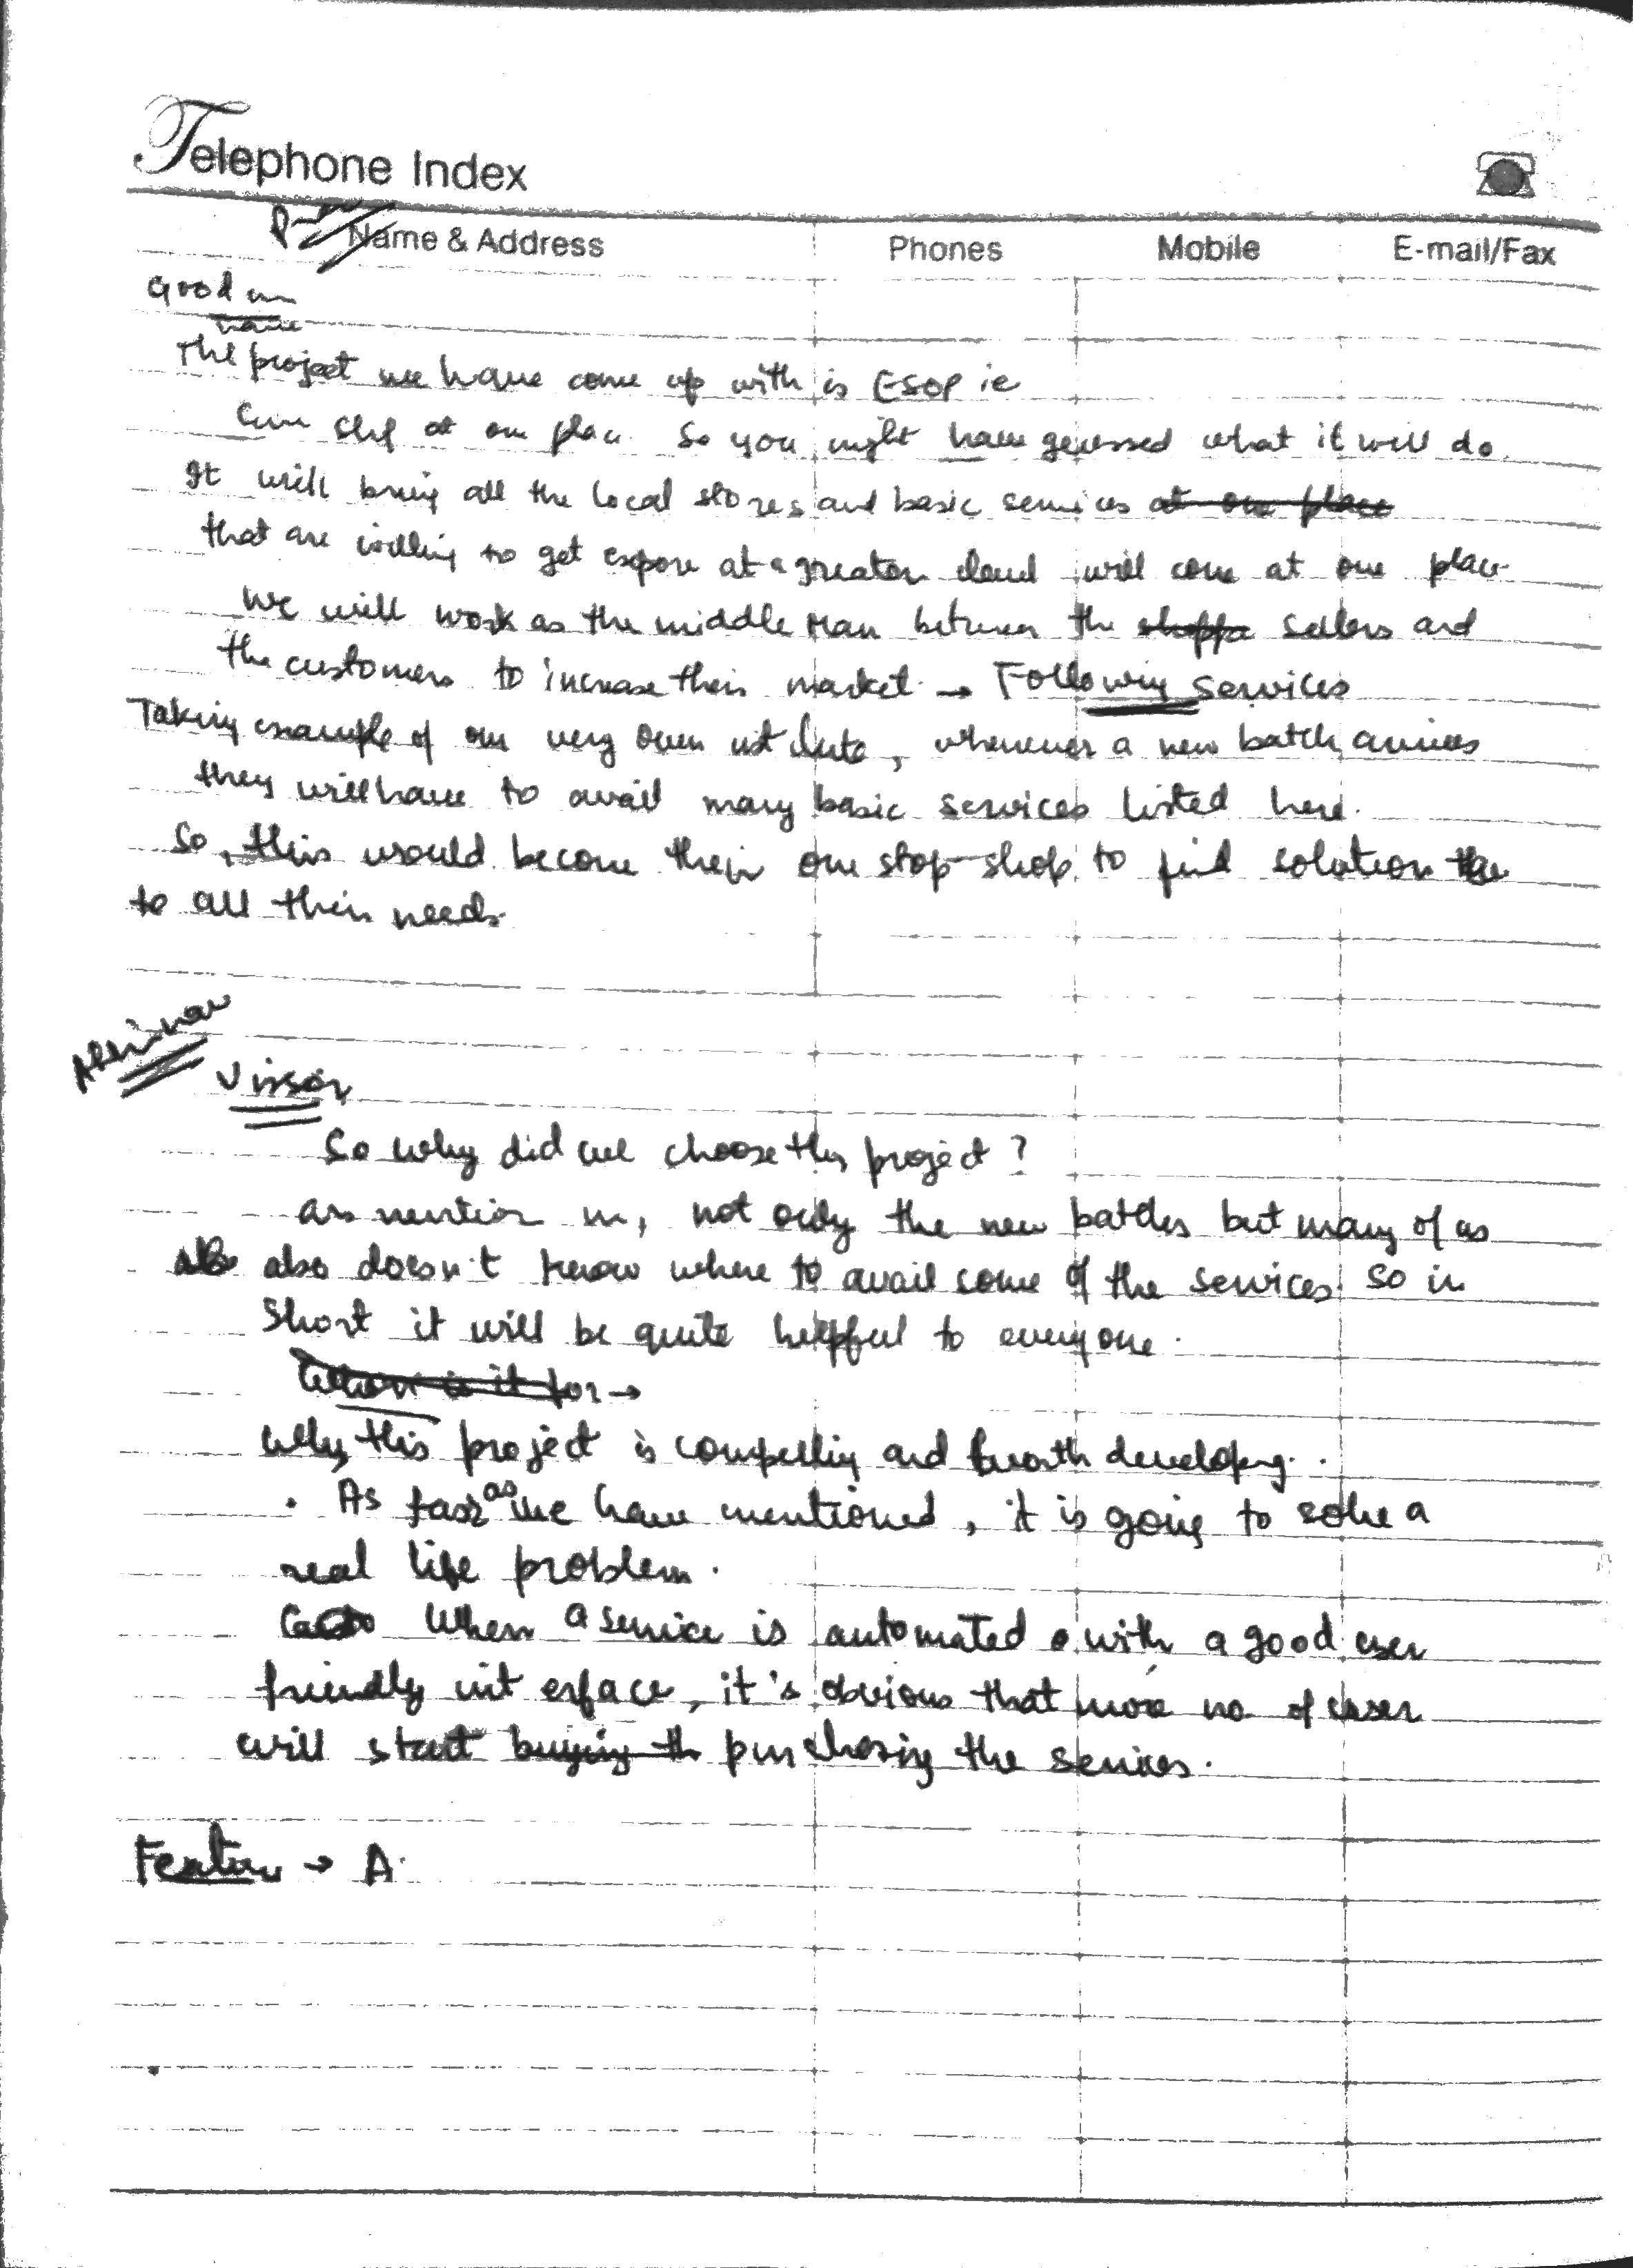 Telephone Index
Name & Address Phones Mobile E-mail/Fax
Good
have
The project we have come up with is ESOP ie
at one place. So you might have guessed what it will do.
It will bring all the local stores and basic services at one place
that are willing to get expose at a greater will come at one place.
We will work as the middle man between the shoppe sellers and
the customers to increase their market → Following services
Taking example of our very own institute, whenever a new batch arrives
they will have to avail many basic services listed here.
So, this would become their one stop-shop to find solution the
to all their needs.
Abhinav
Vission
So why did we choose this project?
as mention in, not only the new batches but many of us
also doesn't know where to avail some of the services. So in
short it will be quite helpful to everyone.
Whom is it for →
Why this project is compelling and worth developing.
• As far as we have mentioned, it is going to solve a
real life problem.
When a service is automated with a good user
friendly interface, it's obvious that more no of user
will start buying th purchasing the services.
Feature → A.